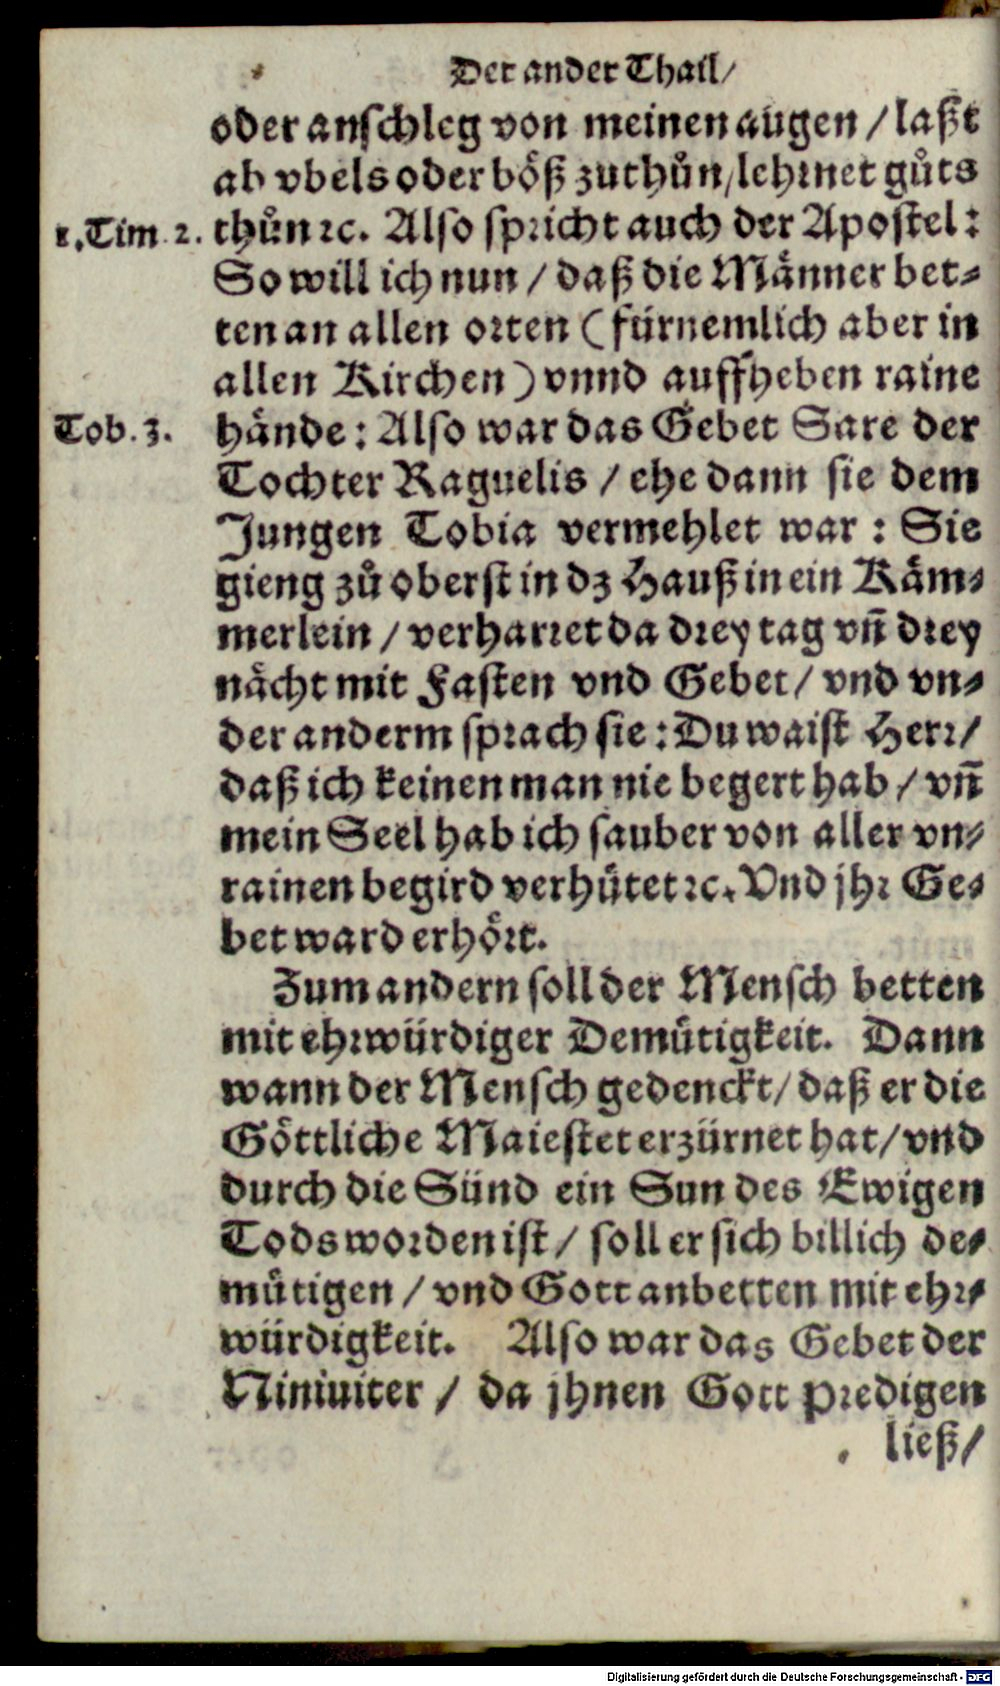 Der ander Thail/
oder anschleg von meinen augen / laßt
ab vbels oder böß zuthůn / lehrnet gůts
1. Tim. 2. thůn ꝛc. Also spricht auch der Apostel:
So will ich nun / daß die Männer bet⸗
ten an allen orten ( fürnemlich aber in
allen Kirchen ) vnnd auffheben raine
Tob. 3. hände: Also war das Gebet Sare der
Tochter Raguelis / ehe dann sie dem
Jungen Tobia vermehlet war : Sie
gieng zů oberst in dz Hauß in ein Käm⸗
merlein / verharret da drey tag vñ drey
nächt mit Fasten vnd Gebet / vnd vn⸗
der anderm sprach sie: Du waist Herr /
daß ich keinen man nie begert hab / vñ
mein Seel hab ich sauber von aller vn⸗
rainen begird verhütet ꝛc. Vnd jhr Ge⸗
bet ward erhört.
Zum andern soll der Mensch betten
mit ehrwürdiger Demütigkeit. Dann
wann der Mensch gedenckt / daß er die
Göttliche Maiestet erzürnet hat / vnd
durch die Sünd ein Sun des Ewigen
Tods worden ist / soll er sich billich de⸗
mütigen / vnd Gott anbetten mit ehr⸗
würdigkeit. Also war das Gebet der
Niniuiter / da jhnen Gott predigen
ließ /
Digitalisierung gefördert durch die Deutsche Forschungsgemeinschaft - DFG